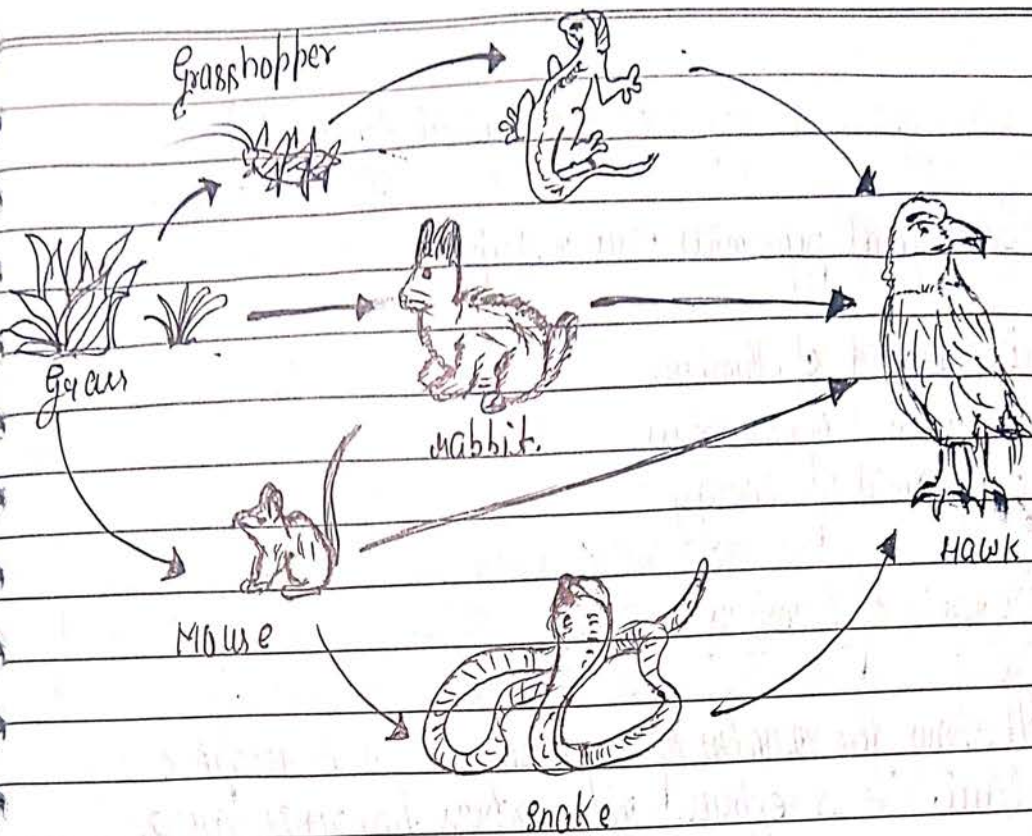 Grasshopper
Grass
rabbit.
Mouse
Hawk
snake